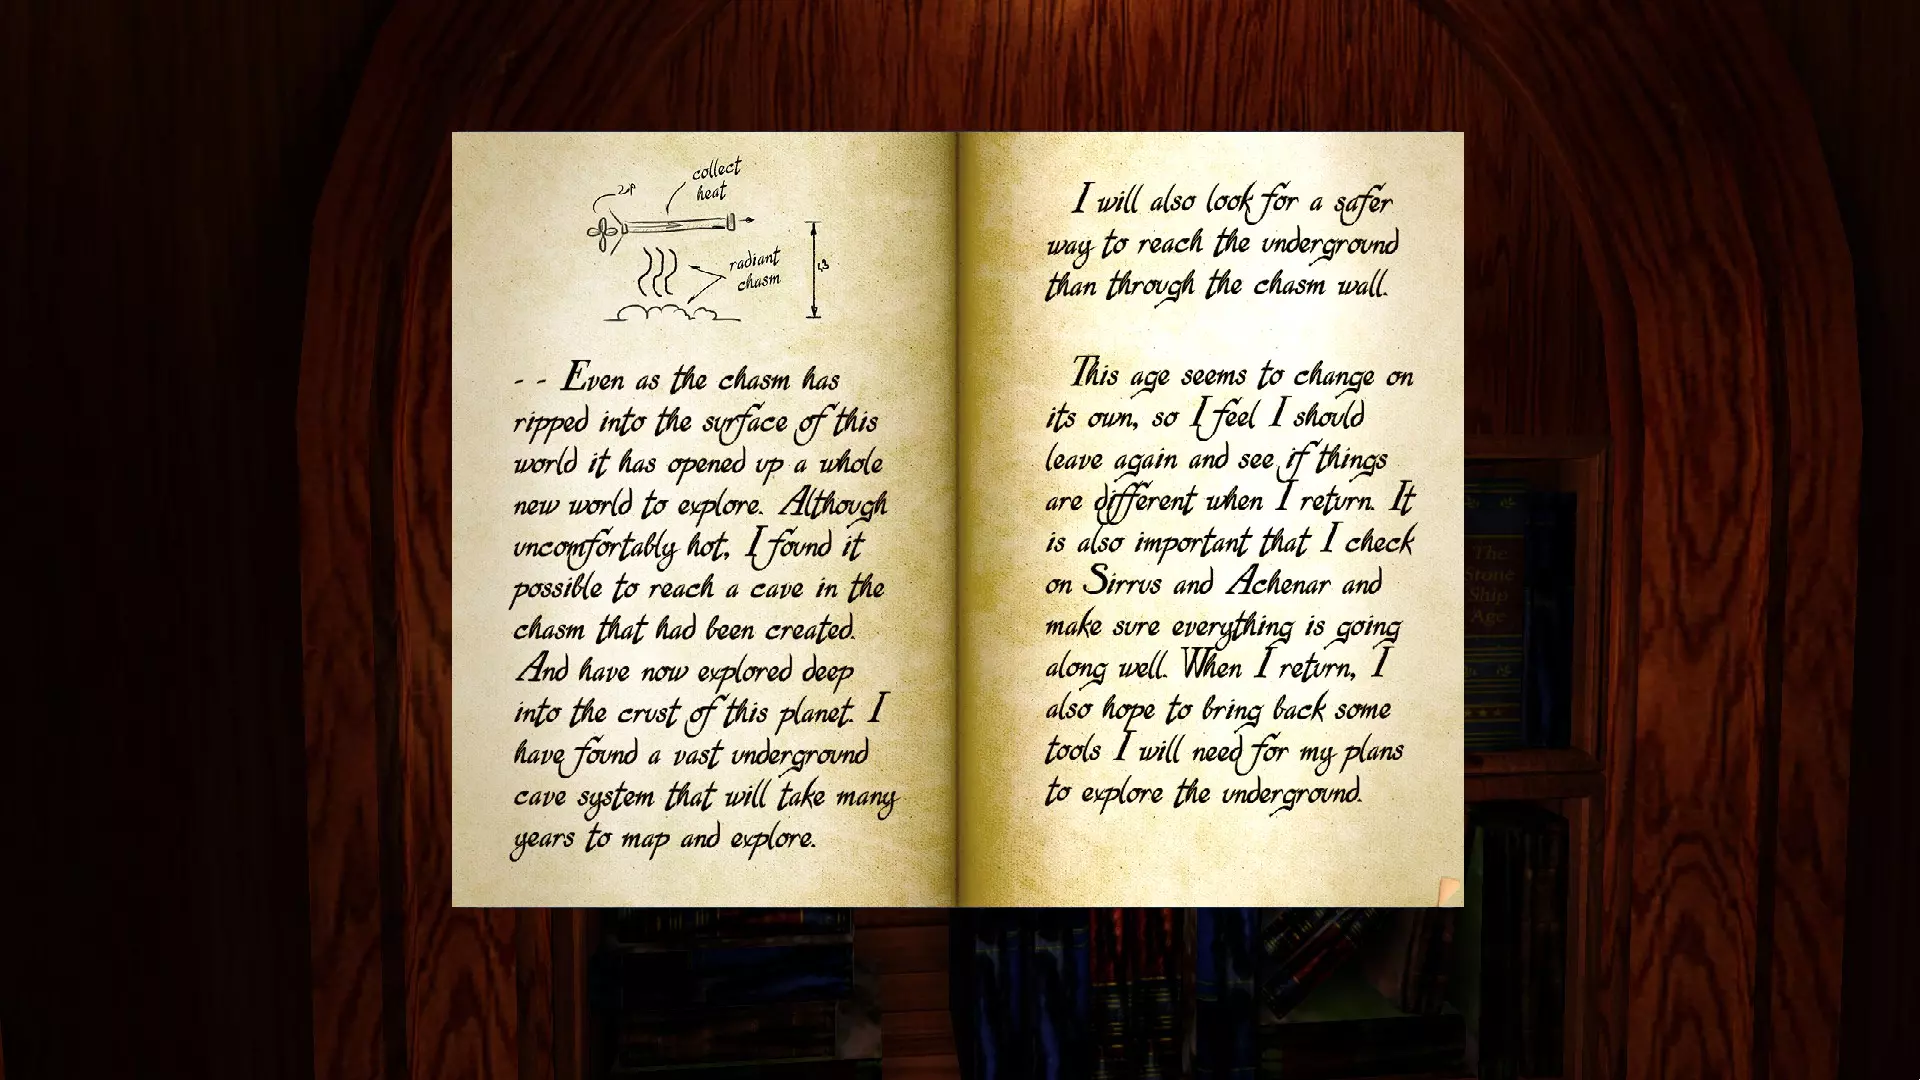 collect
heat
radiant
chasm
- - Even as the chasm has
ripped into the surface of this
world it has opened up a whole
new world to explore. Although
uncomfortably hot, I found it
possible to reach a cave in the
chasm that had been created.
And have now explored deep
into the crust of this planet. I
have found a vast underground
cave system that will take many
years to map and explore.
I will also look for a safer
way to reach the underground
than through the chasm wall.
This age seems to change on
its own, so I feel I should
leave again and see if things
are different when I return. It
is also important that I check
on Sirrus and Achenar and
make sure everything is going
along well. When I return, I
also hope to bring back some
tools I will need for my plans
to explore the underground.
The
Stone
Ship
Age